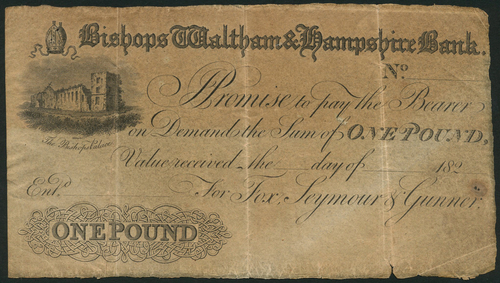 Bishops Waltham & Hampshire Bank.
No.
I Promise to pay the Bearer
on Demand the Sum of ONE POUND,
The Bishops Palace
Value received the day of 182
Entd.
For Fox, Seymour & Gunner.
ONE POUND